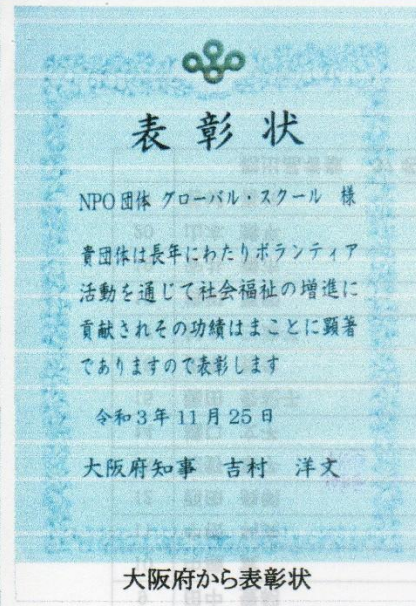 表彰状
NPO団体 グローバル・スクール 様
貴団体は長年にわたりボランティア
活動を通じて社会福祉の増進に
貢献されその功績はまことに顕著
でありますので表彰します
令和3年11月25日
大阪府知事 吉村 洋文
大阪府から表彰状